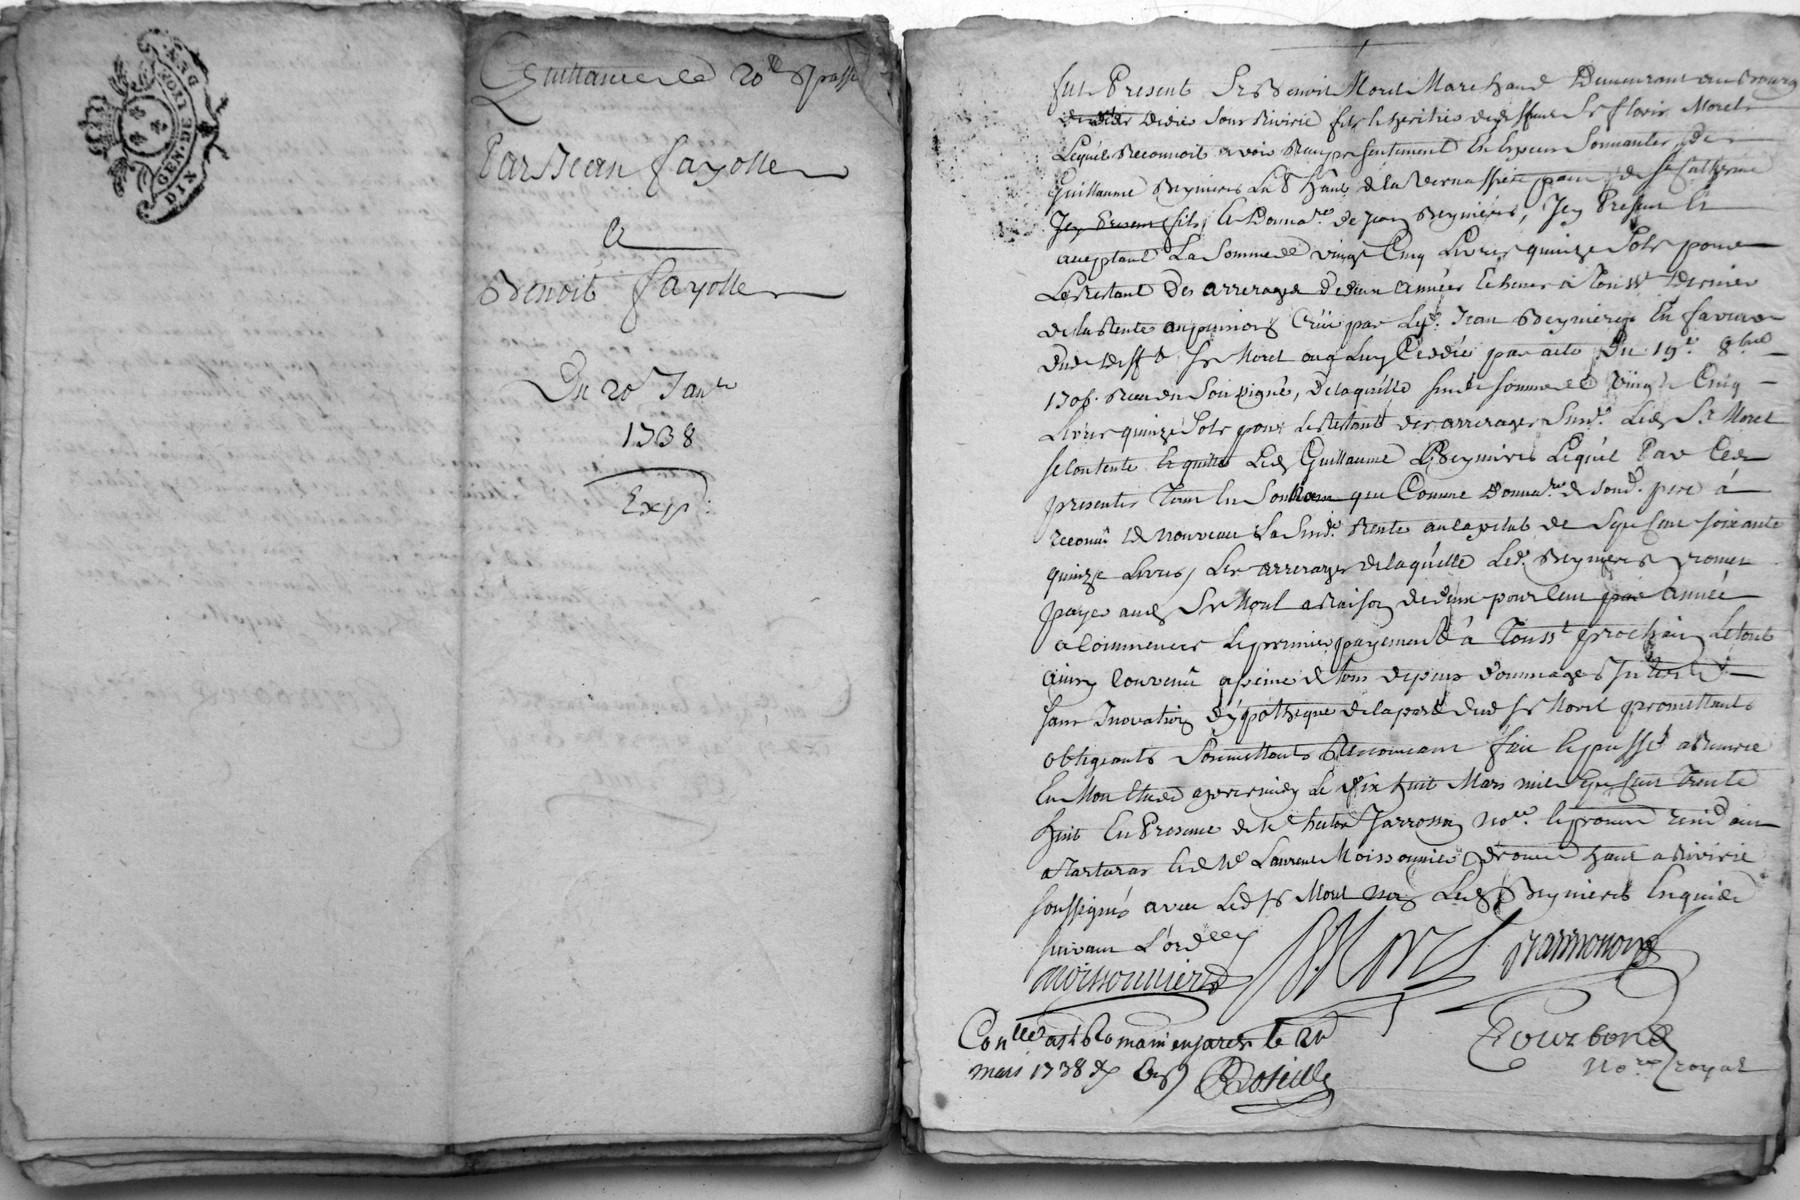 DEN
MOYEN
GEN. DE
DIX
Quittance de 20 ll passé
Par Jean fayolle
&
Benoit fayolle
Du 20 Janr
1738
Exp:
fut Present Sr Benoit Morel Marchand Demeurant au Bourg
de St Didier sous Riverie fils & heritier de deffunt Sr floris Morel
Lequel Reconnoit avoir Reçu presentement En Especes Sonnantes de
Guillaume Beynieres de la paroisse de Ste Catherine
Jcy Present fils & Donnare de Jean Beynieres, Jcy Present &
acceptant La Somme de vingt Cinq Livres quinze Sols pour
Le Restant Des arrerages de deux années Echeues à Tousst Dernier
de la Rente an pension Créé par Led. Jean Beynieres En faveur
dud defft Sr Morel par acte Du 19e 8bre
1706. Reçu du Soussigné, de laquelle sude somme de vingt Cinq
Livres quinze Sols pour Le Restant des arrerages Sund. Led Sr Morel
se Contente & quitte Led Guillaume Beynieres Lequel Par Ces
presentes Tant En Son Nom que Comme Donnare de Sond. pere à
reconu de nouveau La Sude Rente au Capital de Sept Cent soixante
quinze Livres, Les arrerages de laquelle Led. Beynieres promet
payer aud Sr Morel a Raison de deux pour Cent par année
a Commencer Le premier payement à Tousst prochain Le tout
ainsy Convenu a peine de tous depens dommages & Interets
sans Inovation d'ypotheque de la part dud Sr Morel promettants
obligeants Soumettants Renonceant fait & passé a Riverie
En Mon Etude apres midy Le dix huit Mars mil Sept Cent Trente
huit En Presence de Me hector Jarrosson Nore & procureur residant
a Tartaras & de Me Laurent Moissonnier a Riverie
soussignés avec Led Sr Morel non Led Beynieres Enquis
suivant L'ordce
Moissonnier
B Morel
Contllé a St Romain en jarest le 20
mars 1738
Roseille
Bourbon
Nore royal